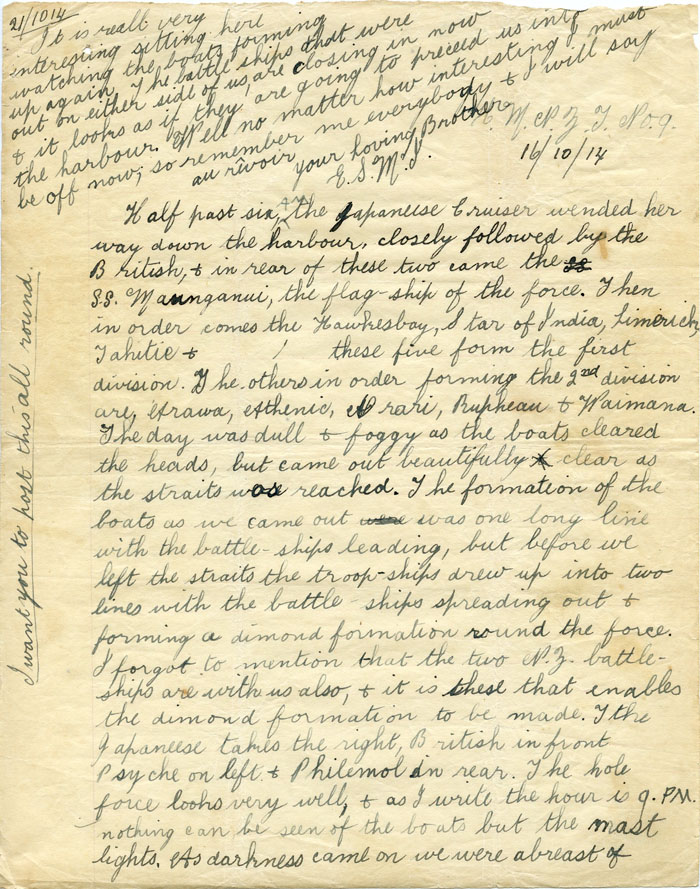 21/10/14
It is reall very
interesting sitting here
watching the boats forming
up again. The battle ships that were
out on either side of us, are closing in now
& it looks as if they are going to preceed us into
the harbour. Well no matter how interesting I must
be off now, so remember me everybody & I will say
au rêvoir your loving Brother
E.S.M.
H. M. N. Z. T. No. 9.
16/10/14
Half past six, the Japaneese Cruiser wended her
way down the harbour, closely followed by the
British, & in rear of these two came the
S.S. Maunganui, the flag-ship of the force. Then
in order comes the Hawkesbay, Star of India, Limerick,
Tahitie & these five form the first
division. The others in order forming the 2nd division
are, Arawa, Athenic, Orari, Rupheau & Waimana.
The day was dull & foggy as the boats cleared
the heads, but came out beautifully clear as
the straits was reached. The formation of the
boats as we came out were was one long line
with the battle-ships leading, but before we
left the straits the troop-ships drew up into two
lines with the battle-ships spreading out &
forming a dimond formation round the force.
I forgot to mention that the two N.Z. battle-
ships are with us also, & it is these that enables
the dimond formation to be made. The
Japaneese takes the right, British in front
Psyche on left & Philemol in rear. The hole
force looks very well, & as I write the hour is 9. PM.
nothing can be seen of the boats but the mast
lights. As darkness came on we were abreast of
I want you to post this all round.